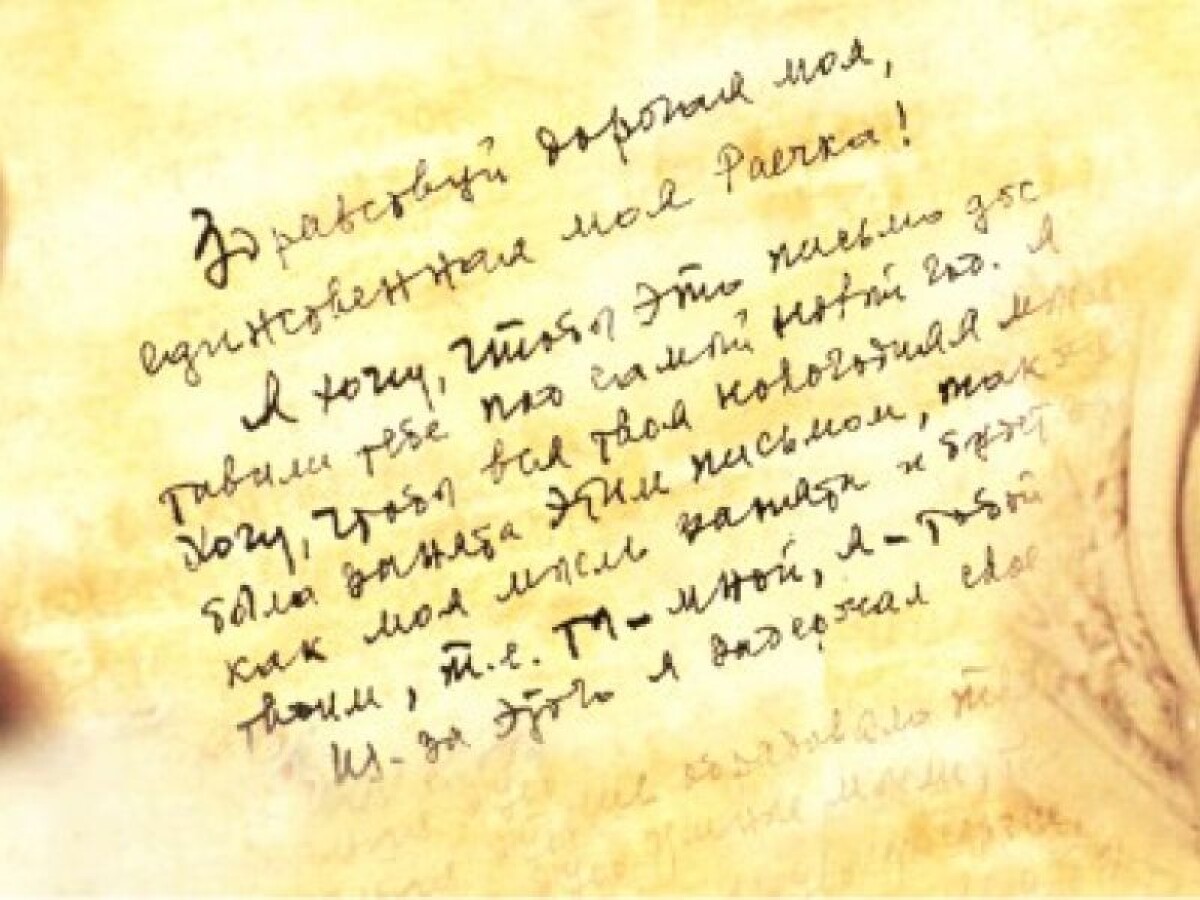 Здравствуй дорогая моя,
единственная моя Раечка!
Я хочу, чтобы это письмо дос
тавили тебе под самый новый год. Я
хочу, чтобы вся твоя новогодняя
была занята этим письмом, так
как моя мысль занята и будет
твоим, т.е. ты - мной, я - тобой
Из-за этого я задержал свое